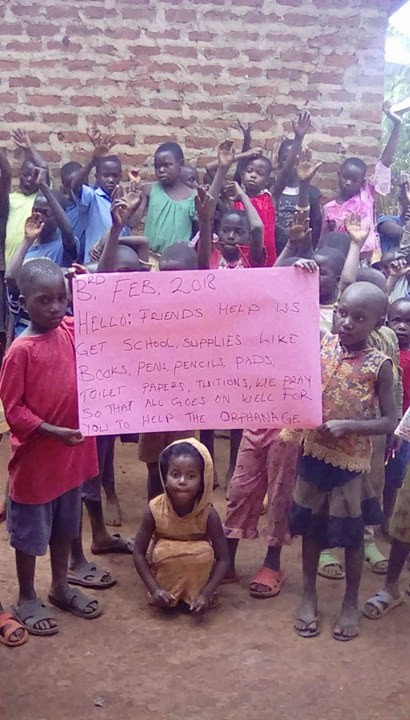 3RD, FEB, 2018
HELLO: FRIENDS HELP US
GET SCHOOL, SUPPLIES LIKE
BOOKS, PENS, PENCILS, PADS,
TOILET PAPERS, TUITIONS, WE PRAY
SO THAT ALL GOES ON WELL FOR
YOU TO HELP THE ORPHANAGE